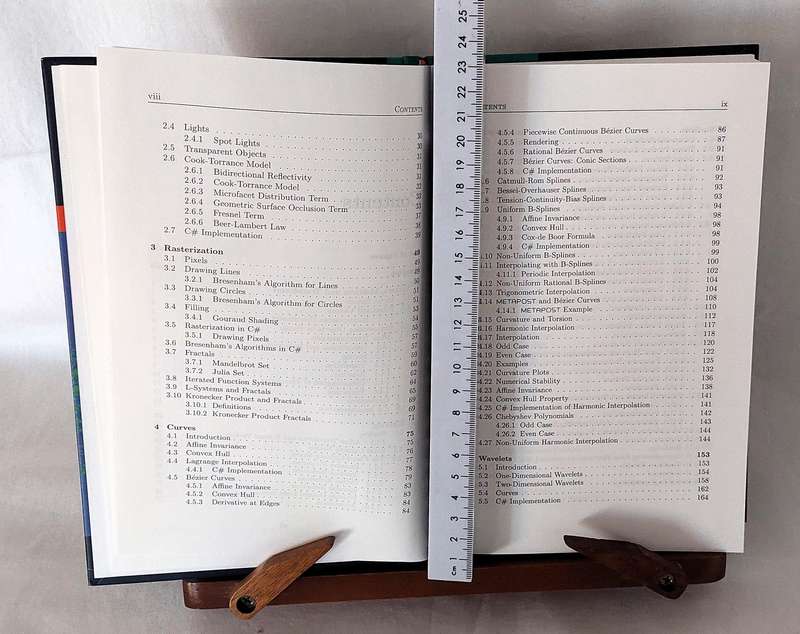 viii
CONTENTS
2.4 Lights
2.4.1 Spot Lights
2.5 Transparent Objects
2.6 Cook-Torrance Model
2.6.1 Bidirectional Reflectivity
2.6.2 Cook-Torrance Model
2.6.3 Microfacet Distribution Term
2.6.4 Geometric Surface Occlusion Term
2.6.5 Fresnel Term
2.6.6 Beer-Lambert Law
2.7 C# Implementation
3 Rasterization 49
3.1 Pixels 49
3.2 Drawing Lines 50
3.2.1 Bresenham's Algorithm for Lines 50
3.3 Drawing Circles 51
3.3.1 Bresenham's Algorithm for Circles 51
3.4 Filling 53
3.4.1 Gouraud Shading 54
3.5 Rasterization in C# 55
3.5.1 Drawing Pixels 57
3.6 Bresenham's Algorithms in C# 57
3.7 Fractals 59
3.7.1 Mandelbrot Set 60
3.7.2 Julia Set 62
3.8 Iterated Function Systems 64
3.9 L-Systems and Fractals 65
3.10 Kronecker Product and Fractals 69
3.10.1 Definitions 69
3.10.2 Kronecker Product Fractals 71
4 Curves 75
4.1 Introduction 75
4.2 Affine Invariance 76
4.3 Convex Hull 77
4.4 Lagrange Interpolation 78
4.4.1 C# Implementation 79
4.5 Bézier Curves 83
4.5.1 Affine Invariance 83
4.5.2 Convex Hull 84
4.5.3 Derivative at Edges 84
25
24
23
22
21
20
19
18
17
16
15
14
13
12
11
10
9
8
7
6
5
4
3
2
1
cm
TENTS ix
4.5.4 Piecewise Continuous Bézier Curves 86
4.5.5 Rendering 87
4.5.6 Rational Bézier Curves 91
4.5.7 Bézier Curves: Conic Sections 91
4.5.8 C# Implementation 91
.6 Catmull-Rom Splines 92
.7 Bessel-Overhauser Splines 93
.8 Tension-Continuity-Bias Splines 93
.9 Uniform B-Splines 94
4.9.1 Affine Invariance 98
4.9.2 Convex Hull 98
4.9.3 Cox-de Boor Formula 98
4.9.4 C# Implementation 99
4.10 Non-Uniform B-Splines 99
4.11 Interpolating with B-Splines 100
4.11.1 Periodic Interpolation 102
4.12 Non-Uniform Rational B-Splines 104
4.13 Trigonometric Interpolation 104
4.14 METAPOST and Bézier Curves 108
4.14.1 METAPOST Example 110
4.15 Curvature and Torsion 112
4.16 Harmonic Interpolation 117
4.17 Interpolation 118
4.18 Odd Case 120
4.19 Even Case 122
4.20 Examples 125
4.21 Curvature Plots 132
4.22 Numerical Stability 136
4.23 Affine Invariance 138
4.24 Convex Hull Property 141
4.25 C# Implementation of Harmonic Interpolation 141
4.26 Chebyshev Polynomials 142
4.26.1 Odd Case 143
4.26.2 Even Case 144
4.27 Non-Uniform Harmonic Interpolation 144
Wavelets 153
5.1 Introduction 153
5.2 One-Dimensional Wavelets 154
5.3 Two-Dimensional Wavelets 158
5.4 Curves 162
5.5 C# Implementation 164